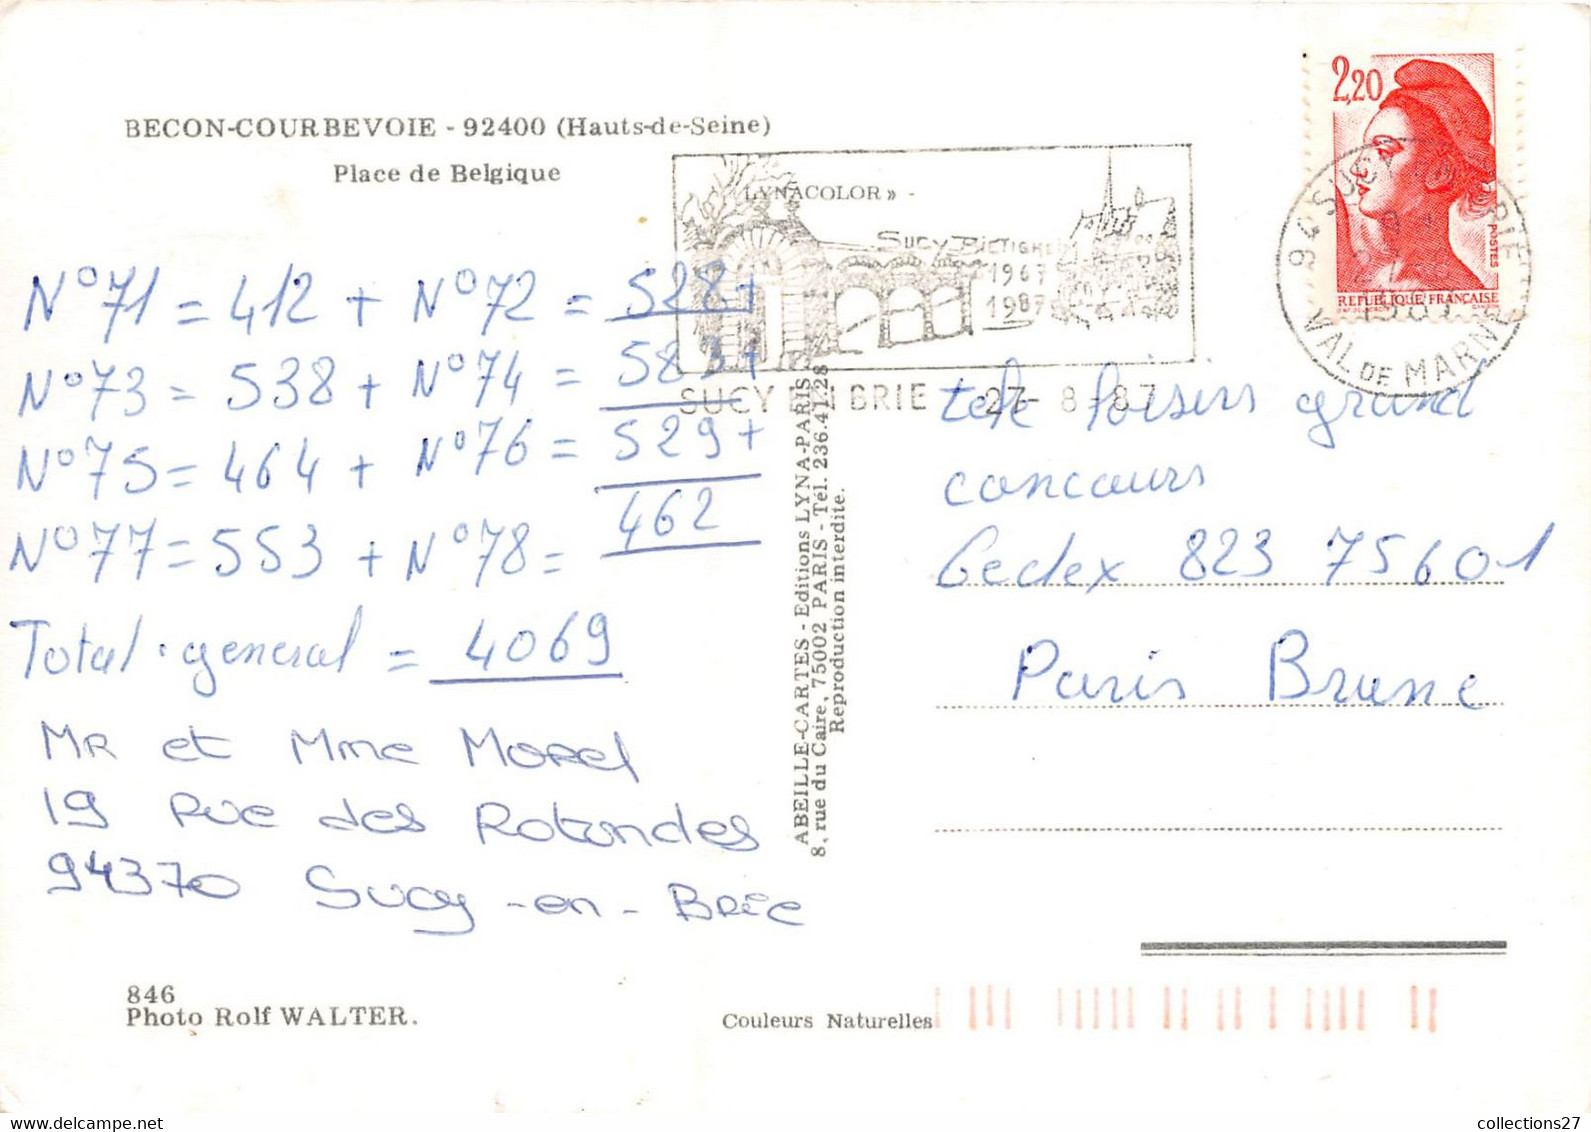 BECON-COURBEVOIE - 92400 (Hauts-de-Seine)
Place de Belgique
LYNACOLOR » -
SUCY BIETIGHEIM
1967
1987
SUCY EN BRIE 27-8-87
2,20
POSTES
REPUBLIQUE FRANÇAISE
94 SUCY EN BRIE
VAL DE MARNE
N°71 = 412 + N°72 = 528 +
N°73 = 538 + N°74 = 583 +
N°75 = 464 + N°76 = 529 +
N°77 = 553 + N°78 = 462
Total general = 4069
MR et Mme Morel
19 Rue des Rotondes
94370 Sucy-en-Brie
télé loisirs grand
concours
Cedex 823 75601
Paris Brune
ABEILLE-CARTES - Editions LYNA-PARIS
8, rue du Caire, 75002 PARIS - Tél. 236.41.28
Reproduction interdite.
846
Photo Rolf WALTER.
Couleurs Naturelles
collections27